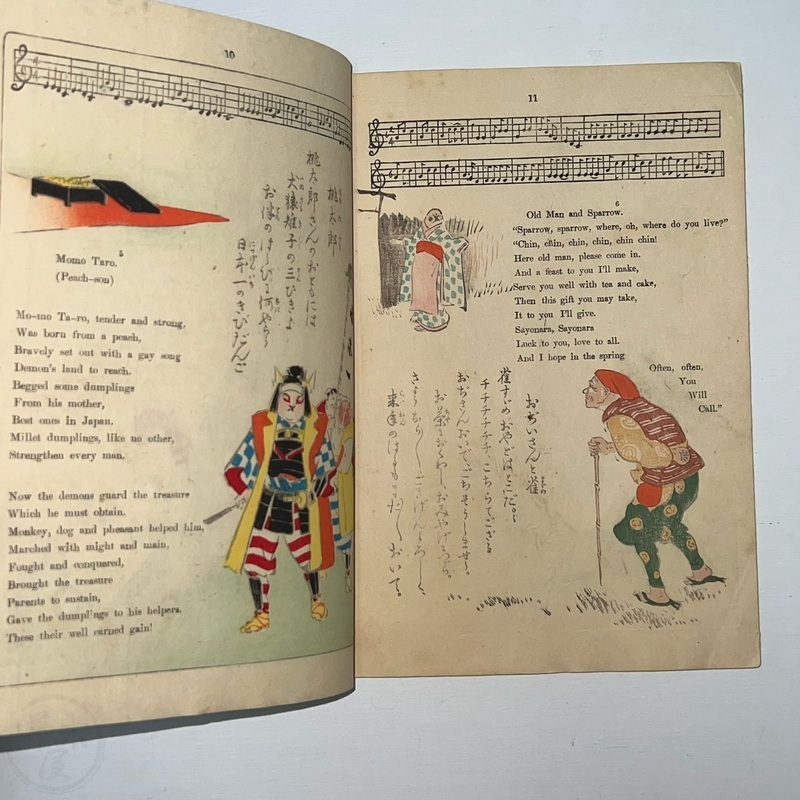 10
5
Momo Taro.
(Peach-son)
Mo-mo Ta-ro, tender and strong,
Was born from a peach,
Bravely set out with a gay song
Demon's land to reach.
Begged some dumplings
From his mother,
Best ones in Japan.
Millet dumplings, like no other,
Strengthen every man.
Now the demons guard the treasure
Which he must obtain.
Monkey, dog and pheasant helped him,
Marched with might and main,
Fought and conquered,
Brought the treasure
Parents to sustain,
Gave the dumplings to his helpers.
These their well earned gain!
桃太郎
桃太郎さんのおともには
犬猿雉子の三びきよ
お伴のほうびは何やらう
日本一のきびだんご
11
6
Old Man and Sparrow.
"Sparrow, sparrow, where, oh, where do you live?"
"Chin, chin, chin, chin, chin chin!
Here old man, please come in.
And a feast to you I'll make,
Serve you well with tea and cake,
Then this gift you may take,
It to you I'll give.
Sayonara, Sayonara
Luck to you, love to all.
And I hope in the spring
Often, often,
You
Will
Call."
おぢいさんと雀
雀すゞめおやどはどこだ。
チチチチチチ、こちらでござる
おぢさんおいで、ごちそうしませう。
お茶にお
さようなら